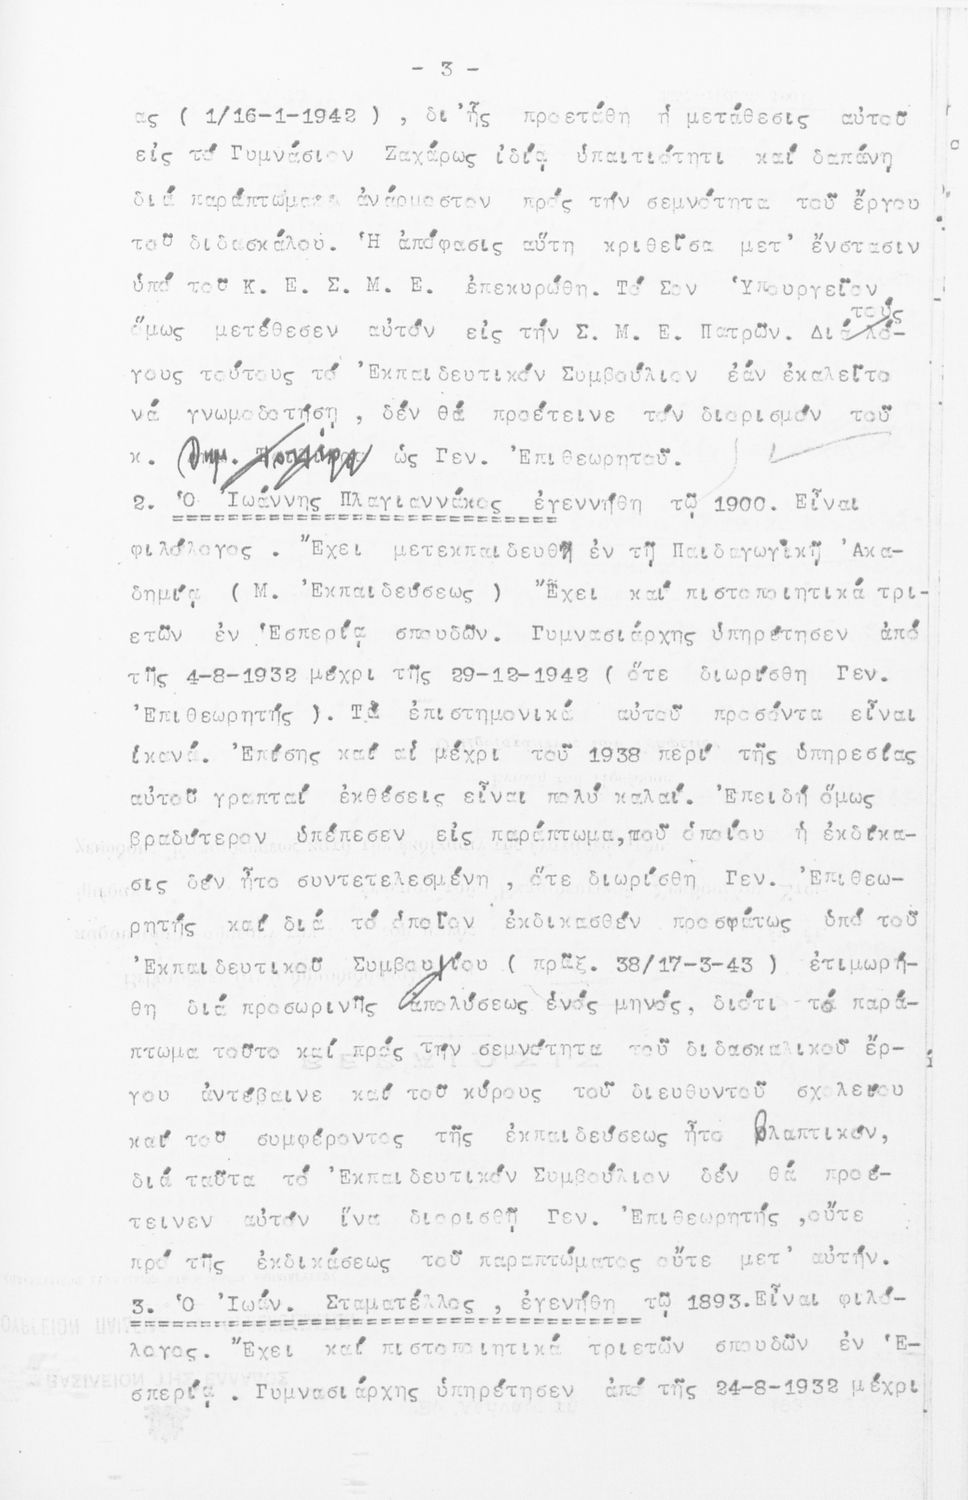 - 3 -
ας ( 1/16-1-1942 ) , δι'ἧς προετάθη ἡ μετάθεσις αὐτοῦ
εἰς τό Γυμνάσιον Ζαχάρως ἰδίᾳ ὑπαιτιότητι καί δαπάνῃ
διά παράπτωμα ἀνάρμοστον πρός τήν σεμνότητα τοῦ ἔργου
τοῦ διδασκάλου. Ἡ ἀπόφασις αὕτη κριθεῖσα μετ' ἔνστασιν
ὑπό τοῦ Κ. Ε. Σ. Μ. Ε. ἐπεκυρώθη. Τό Σον Ὑπουργεῖον
τούς
ὅμως μετέθεσεν αὐτόν εἰς τήν Σ. Μ. Ε. Πατρῶν. Διά λό-
γους τούτους τό Ἐκπαιδευτικόν Συμβούλιον ἐάν ἐκαλεῖτο
νά γνωμοδοτήσῃ , δέν θά προέτεινε τόν διορισμόν τοῦ
κ. Δημ. ὡς Γεν. Ἐπιθεωρητοῦ.
2. Ὁ Ἰωάννης Πλαγιαννάκος ἐγεννήθη τῷ 1900. Εἶναι
φιλόλογος . Ἔχει μετεκπαιδευθῆ ἐν τῇ Παιδαγωγικῇ Ἀκα-
δημίᾳ ( Μ. Ἐκπαιδεύσεως ) Ἔχει καί πιστοποιητικά τρι-
ετῶν ἐν Ἑσπερίᾳ σπουδῶν. Γυμνασιάρχης ὑπηρέτησεν ἀπό
τῆς 4-8-1932 μέχρι τῆς 29-12-1942 ( ὅτε διωρίσθη Γεν.
Ἐπιθεωρητής ). Τά ἐπιστημονικά αὐτοῦ προσόντα εἶναι
ἱκανά. Ἐπίσης καί αἱ μέχρι τοῦ 1938 περί τῆς ὑπηρεσίας
αὐτοῦ γραπταί ἐκθέσεις εἶναι πολύ καλαί. Ἐπειδή ὅμως
βραδύτερον ὑπέπεσεν εἰς παράπτωμα,τοῦ ὁποίου ἡ ἐκδίκα-
σις δέν ἦτο συντετελεσμένη , ὅτε διωρίσθη Γεν. Ἐπιθεω-
ρητής καί διά τό ὁποῖον ἐκδικασθέν προσφάτως ὑπό τοῦ
Ἐκπαιδευτικοῦ Συμβουλίου ( πρᾶξ. 38/17-3-43 ) ἐτιμωρή-
θη διά προσωρινῆς ἀπολύσεως ἑνός μηνός, διότι τό παρά-
πτωμα τοῦτο καί πρός τήν σεμνότητα τοῦ διδασκαλικοῦ ἔρ-
γου ἀντέβαινε καί τοῦ κύρους τοῦ διευθυντοῦ σχολείου
καί τοῦ συμφέροντος τῆς ἐκπαιδεύσεως ἦτο βλαπτικόν,
διά ταῦτα τό Ἐκπαιδευτικόν Συμβούλιον δέν θά προέ-
τεινεν αὐτόν ἵνα διορισθῇ Γεν. Ἐπιθεωρητής ,οὔτε
πρό τῆς ἐκδικάσεως τοῦ παραπτώματος οὔτε μετ' αὐτήν.
3. Ὁ Ἰωάν. Σταματέλλος , ἐγενήθη τῷ 1893.Εἶναι φιλό-
λογος. Ἔχει καί πιστοποιητικά τριετῶν σπουδῶν ἐν Ἑ-
σπερίᾳ . Γυμνασιάρχης ὑπηρέτησεν ἀπό τῆς 24-8-1932 μέχρι